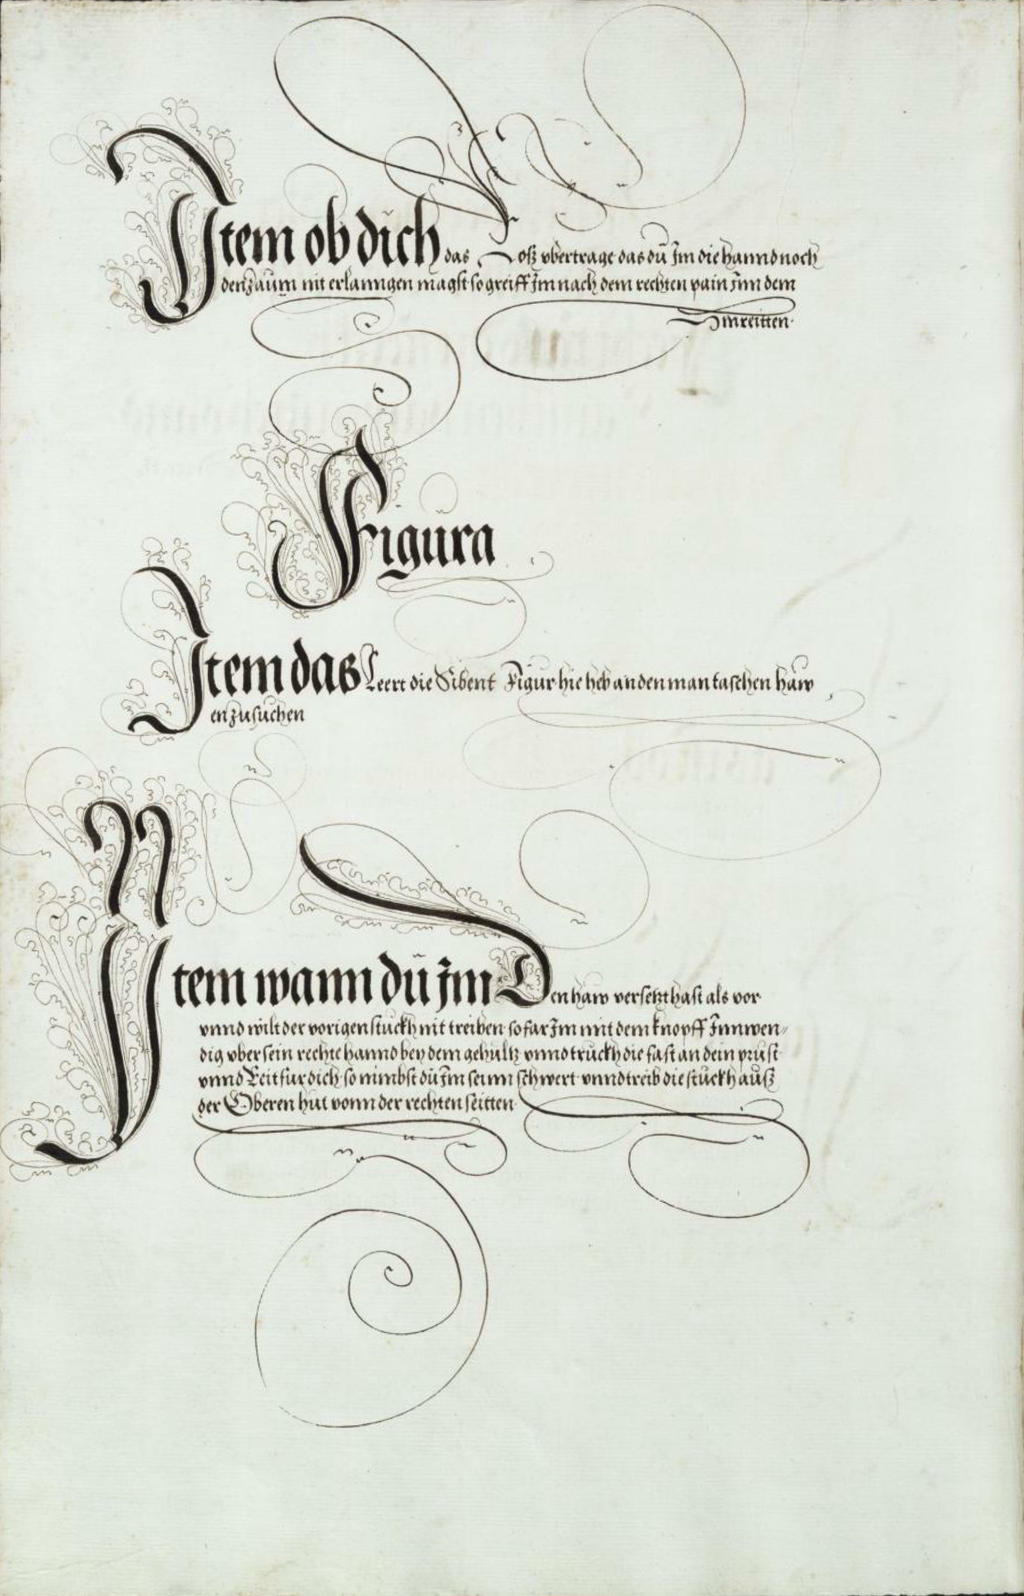 Item ob dich das Roß vbertrage das dü Im die hannd noch
den zaüm nit erlanngen magst so greiff Im nach dem rechten pain Inn dem
Einreitten·
Figüra
Item das Leert die Sibent Figur· hie heb an den man taschen haw
en zü süchen
Item wann dü Im Den haw versetzt hast als vor
vnnd wilt der vorigen stückh nit treiben· so far Im mit dem knopff Innwen=
dig vber sein rechte hannd bey dem gehültz vnnd trückh die fast an dein prüst
vnnd Reit für dich· so nimbst dü Im seinn schwert· vnnd treib die stückh aüß
der Oberen hüt vonn der rechten seitten·